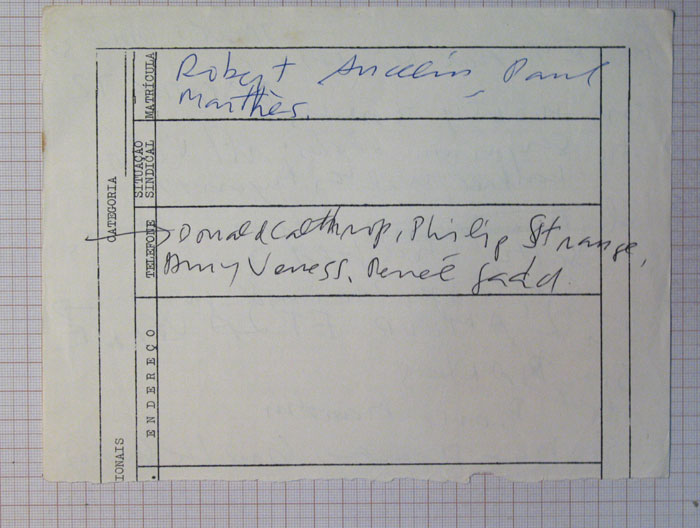 MATRÍCULA
Robert Ancelin, Paul
Marthès.
CATEGORIA
SITUAÇÃO
SINDICAL
TELEFONE
Donald Calthrop, Philip Strange,
Amy Veness, Reneé Gadd.
ENDEREÇO
IONAIS